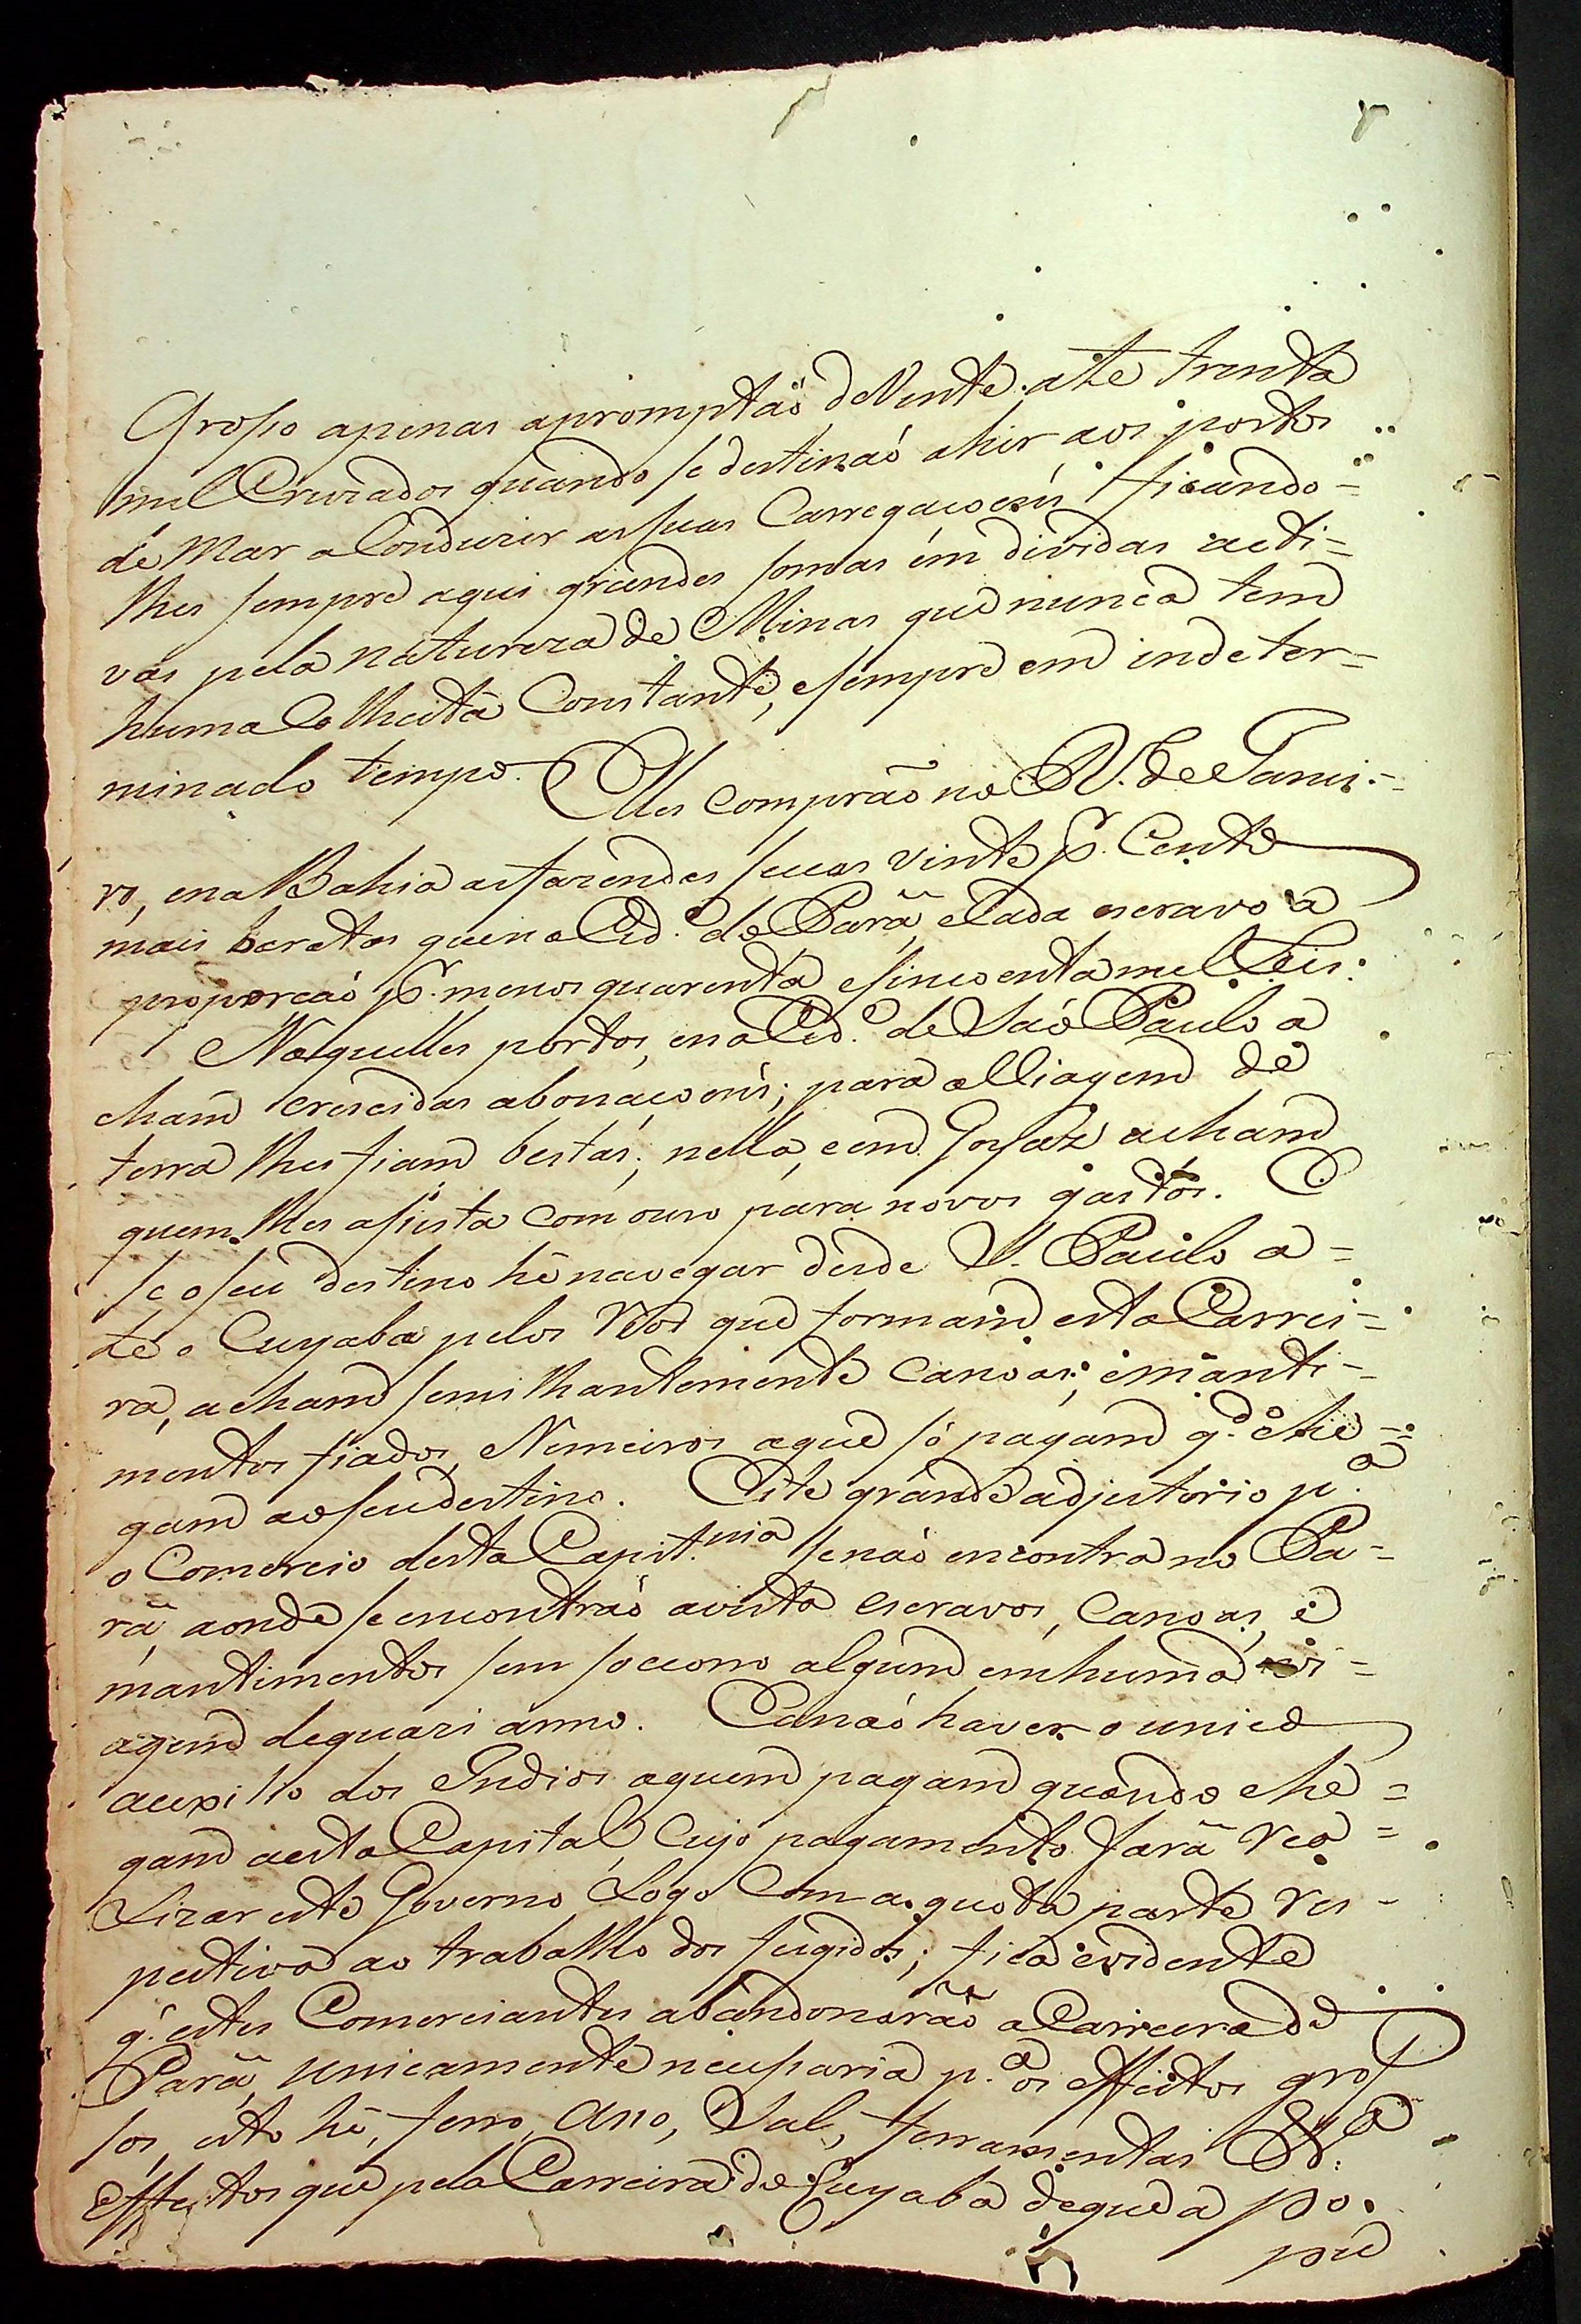 Grosso apenas apromptaõ de Vinte athe trenta
mil Cruzados quando se destinaõ ahir aos portos
de Mar a Conduzir as suas Carregacoens, ficando=
lhes sempre aqui grandes somas em dividas acti=
vas pela natureza de Minas que nunca tem
huma Colheita Constante, esempre em indeter=
minado tempo. Elles comprão no R. de Janei=
ro, ena Bahia as fazendas seccas vinte pr. Cento
mais baratas que na Cid.e do Parã, e Cada escravo a
proporcaõ pr. menos quarenta esincoenta mil Reis.
Naquelles portos, ena Cid.e de Saõ Paulo a
cham crescidas abonacoens; para a Viagem de
terra lhes fiam bestas; nella, e em Goyaz acham
quem lhes asista com ouro para novos gastos. E
se o seu destino hé navegar desde S. Paulo a=
té o Cuyaba pelos Rios que formam esta Carrei=
ra, acham semilhantemente Canoas, e manti=
mentos fiados, e Remeiros aque só pagam q.do che=
gam ao seu destino. Este grande adjutorio p.a
o Comercio desta Capit.nia se naõ encontra no Pa=
rã, aonde se encontraõ avista escravos, Canoas, e
mantimentos sem socorro algum em huma vi=
agem de quazi anno. E a naõ haver o unico
auxilio dos Indios aquem pagam quando che=
gam aesta Capital, Cujo pagamento fará rea=
Lizar este Governo Logo Com a quota parte res=
pectiva ao trabalho dos fugidos; fica evidente
q. estes Comerciantes abandonarão a Carreira do
Parã, unicamente necessaria p.a os effeitos gros
sos, isto hé, ferro, Aço, Sal, ferramentas &.a
Effeitos que pela Carreira do Cuyaba de que a po.
pu